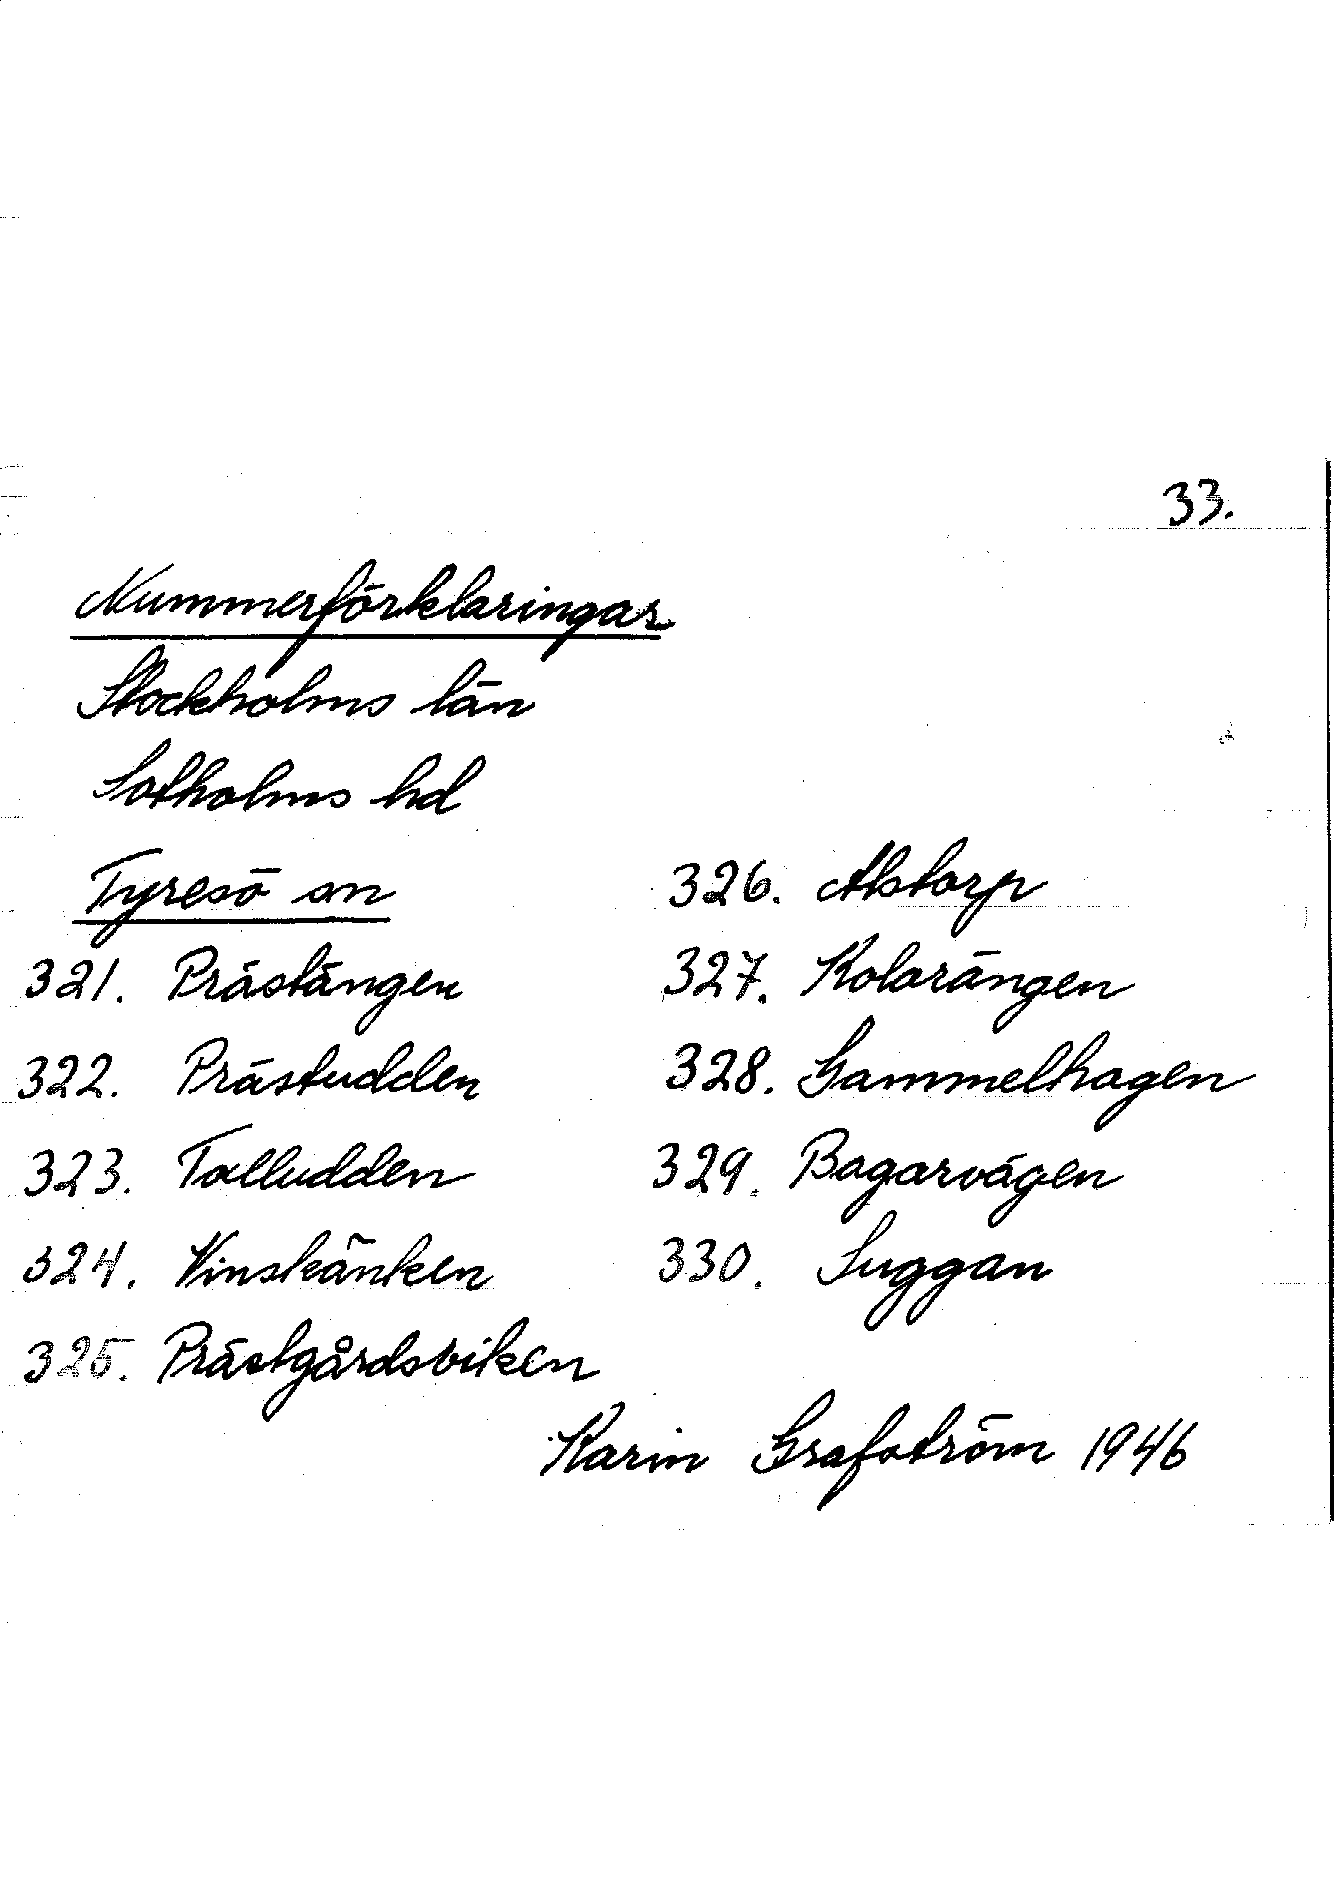 33.
Nummerförklaringar
Stockholms län
Sotholms hd
Tyresö sn
321. Prästängen
322. Prästudden
323. Talludden
324. Vinskänken
325. Prästgårdsviken
326. Alstorp
327. Kolarängen
328. Gammelhagen
329. Bagarvägen
330. Suggan
Karin Grafström 1946